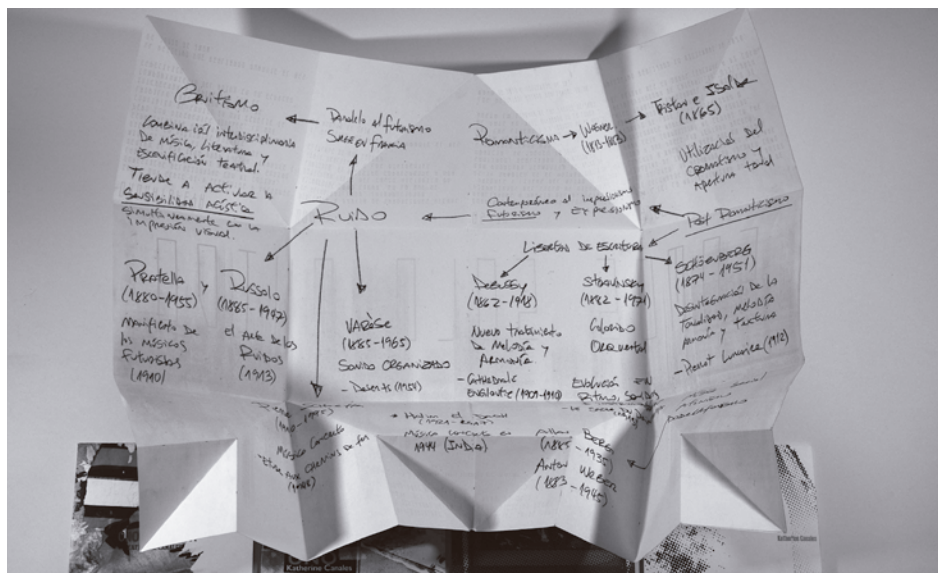 Bruitismo
Combinación interdisciplinaria
De Música, Literatura y
Escenificación teatral.
Tiende a Activar la
Sensibilidad Acústica
simultáneamente con la
impresión visual.
Paralelo al futurismo
Surge en Francia
Romanticismo → Wagner
(1813-1883)
Tristan e Isolda
(1865)
Utilización del
Cromatismo y
Apertura tonal
Ruido
Contemporáneo al impresionismo
Futurismo y Expresionismo
Post Romanticismo
Libertad De Escritura
Pratella y
(1880-1955)
Manifiesto De
los músicos
Futuristas
(1910)
Russolo
(1885-1947)
el Arte De los
Ruidos
(1913)
Varèse
(1883-1965)
Sonido Organizado
- Deserts (1954)
Debussy
(1862-1918)
Nuevo tratamiento
De Melodía y
Armonía
- Cathédrale
Engloutie (1909-1910)
Stravinsky
(1882-1971)
Colorido
Orquestal
Evolución en
Ritmo,
Schöenberg
(1874-1951)
Desintegración De la
Tonalidad, melodía
Armonía y textura
- Pierrot Lunaire (1912)
Música Concreta
- Etude Aux Chemins de Fer
(1948)
Halim El Dabh
(1921-2017)
Música Concreta en
1944 (INDIA)
Alban Berg
(1885
-1935)
Anton Weber
(1883-1945)
Katherine Canales
Katherine Canales